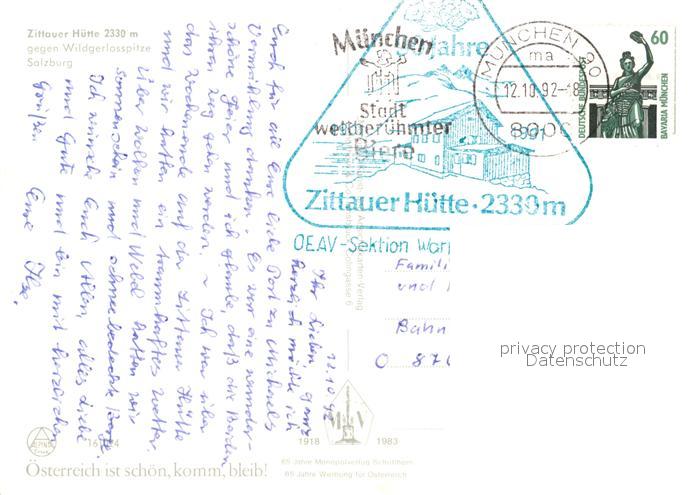 Zittauer Hütte 2330 m
gegen Wildgerlosspitze
Salzburg
München
Stadt
weltberühmter
Biere
Jahre
1991
Zittauer Hütte · 2330m
OEAV-Sektion War
MÜNCHEN 90
ma
12.10.92-18
8000
60
DEUTSCHE BUNDESPOST
BAVARIA MÜNCHEN
12.10.92
Ihr Lieben, ganz
herzlich möchte ich
Euch für die liebe Post zu Michaels
Vermählung danken. Es war eine wunder-
schöne Feier und ich glaube, daß die Beiden
ihren Weg gehen werden. – Ich war über
das Wochenende auf der Zittauer Hütte
und wir hatten ein traumhaftes Wetter.
Über Wolken und Nebel hatten wir
Sonnenschein und schneebedeckte Berge.
Ich wünsche Euch allen, alles Liebe
und Gute und bin mit herzlichen
Grüßen Eure Ilse.
Famili
und
Bahn
O 87
privacy protection
Datenschutz
1918 1983
65 Jahre Monopolverlag Schöllhorn
65 Jahre Werbung für Österreich
Österreich ist schön, komm, bleib!